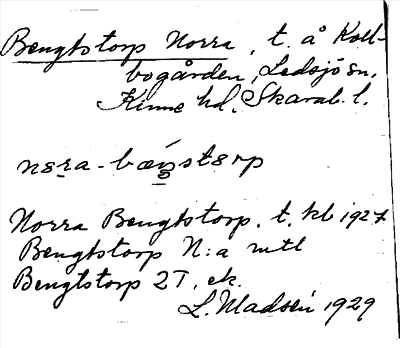 Bengtstorp Norra, t. å Koll-
bogården, Ledsjö sn,
Kinne hd, Skarab. l.
Norra Bengtstorp, t, kb 1927
Bengtstorp N:a mtl
Bengtstorp 2T, ek.
L. Madsén 1929